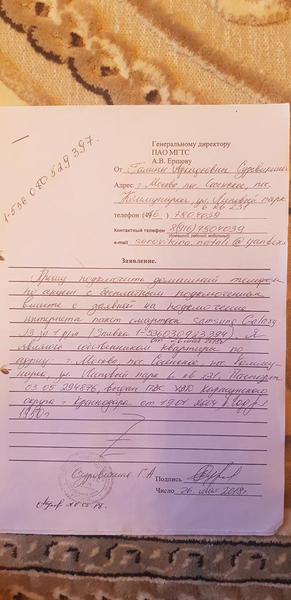 1-536 080 529 397.
Генеральному директору
ПАО МГТС
А.В. Ершову
От Галины Суровикиной
Адрес г Москва, пос. Сосенское, пос.
Коммунарка, ул. Липовый парк
6 кв 231
телефон
Контактный телефон 8(916)7504039
(домашний, рабочий, мобильный)
e-mail
Заявление.
Прошу подключить домашний телефон
по акции с бесплатным подключением
вместе с заявкой на подключение
интернета пакет смартфон Samsung Galaxy
J3 за 1 руб (Заявка 1-
от 26 мая 2018г. Я
являюсь собственником квартиры по
адресу: г Москва, пос. Сосенское, пос. Комму
нарка, ул. Липовый парк 6 кв 231. Паспорт
03 05 294876, выдан ПВС УВД Карасунского
округа г Краснодара от
Суровикина Г.А Подпись
Число 26 мая 2018г.